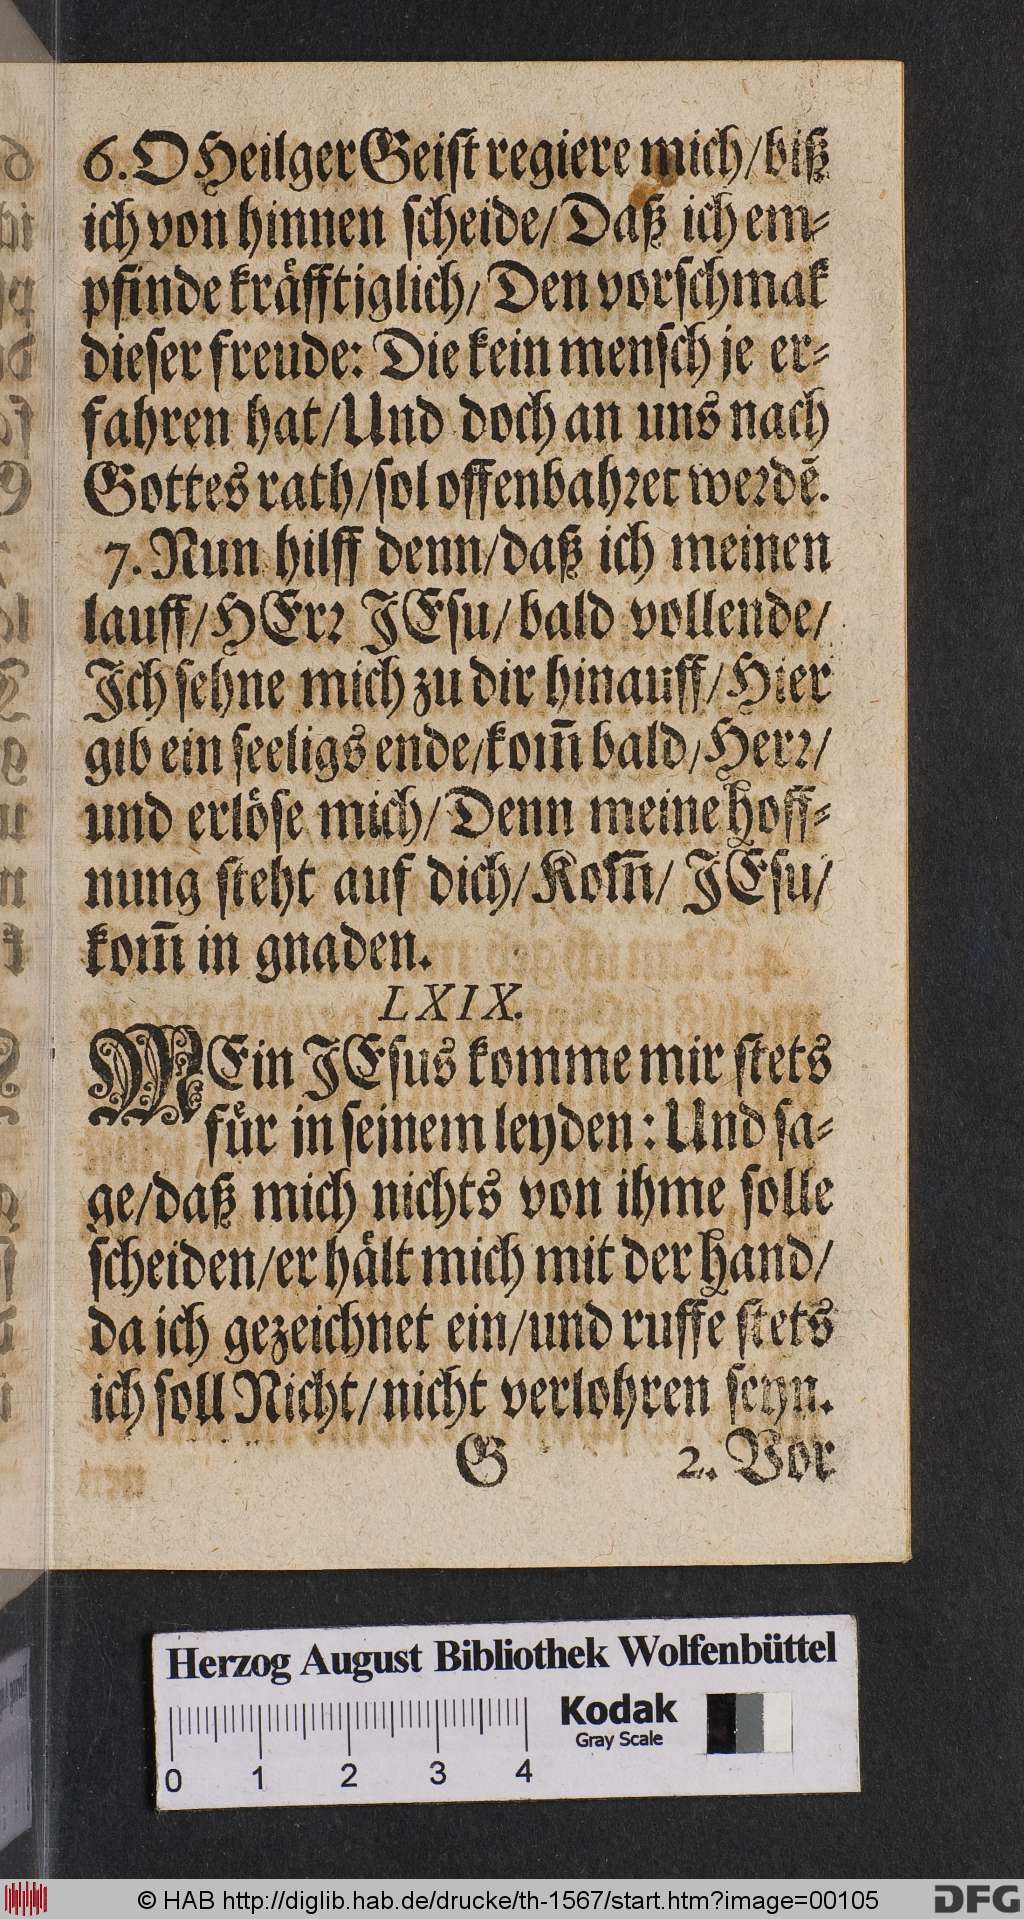 6. O Heilger Geiſt regiere mich/ biß
ich von hinnen ſcheide/ Daß ich em⸗
pfinde kraͤfftiglich/ Den vorſchmak
dieſer freude: Die kein menſch je er⸗
fahren hat/ Und doch an uns nach
Gottes rath/ ſol offenbahꝛet weꝛdē.
7. Nun hilff denn/ daß ich meinen
lauff/ HErꝛ JEſu/ bald vollende/
Jch ſehne mich zu dir hinauff/ Hier
gib ein ſeeligs ende/ kom̄ bald/ Herꝛ/
und erlöſe mich/ Denn meine Hoff⸗
nung ſteht auf dich/ Kom̄/ JEſu/
kom̄ in gnaden.
LXIX.
MEin JEſus komme mir ſtets
fuͤr in ſeinem leyden: Und ſa⸗
ge/ daß mich nichts von ihme ſolle
ſcheiden/ er haͤlt mich mit der Hand/
da ich gezeichnet ein/ und ruffe ſtets
ich ſoll Nicht/ nicht verlohren ſeyn.
G 2. Vor
Herzog August Bibliothek Wolfenbüttel
Kodak
Gray Scale
0 1 2 3 4
© HAB http://diglib.hab.de/drucke/th-1567/start.htm?image=00105
DFG